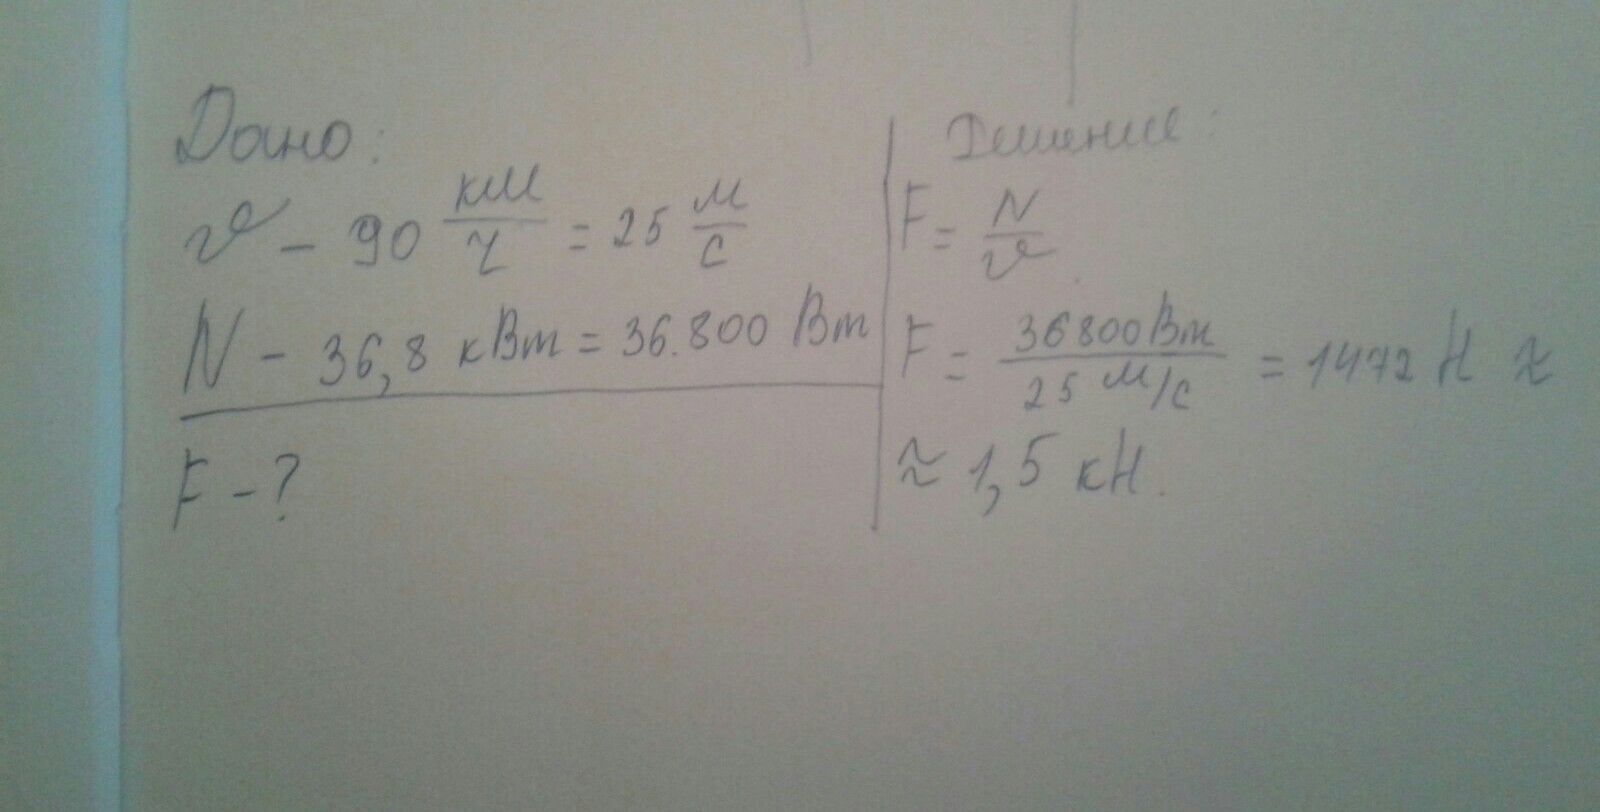 Дано:
v - 90 км/ч = 25 м/с
N - 36,8 кВт = 36.800 Вт
F - ?
Решение:
F = N/v
F = 36800Вт/25 м/с = 1472 Н ≈
≈ 1,5 кН.